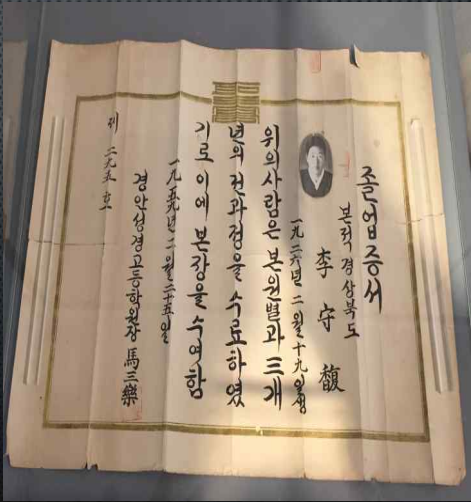 졸업증서
본적 경상북도
李守馥
一九二六년 二월 十九일생
위의 사람은 본원 별과 三개
년의 전과정을 수료하였
기로 이에 본장을 수여함
一九五九년 二월 二十五일
경안성경고등학원장 馬三樂
제 二九五 호